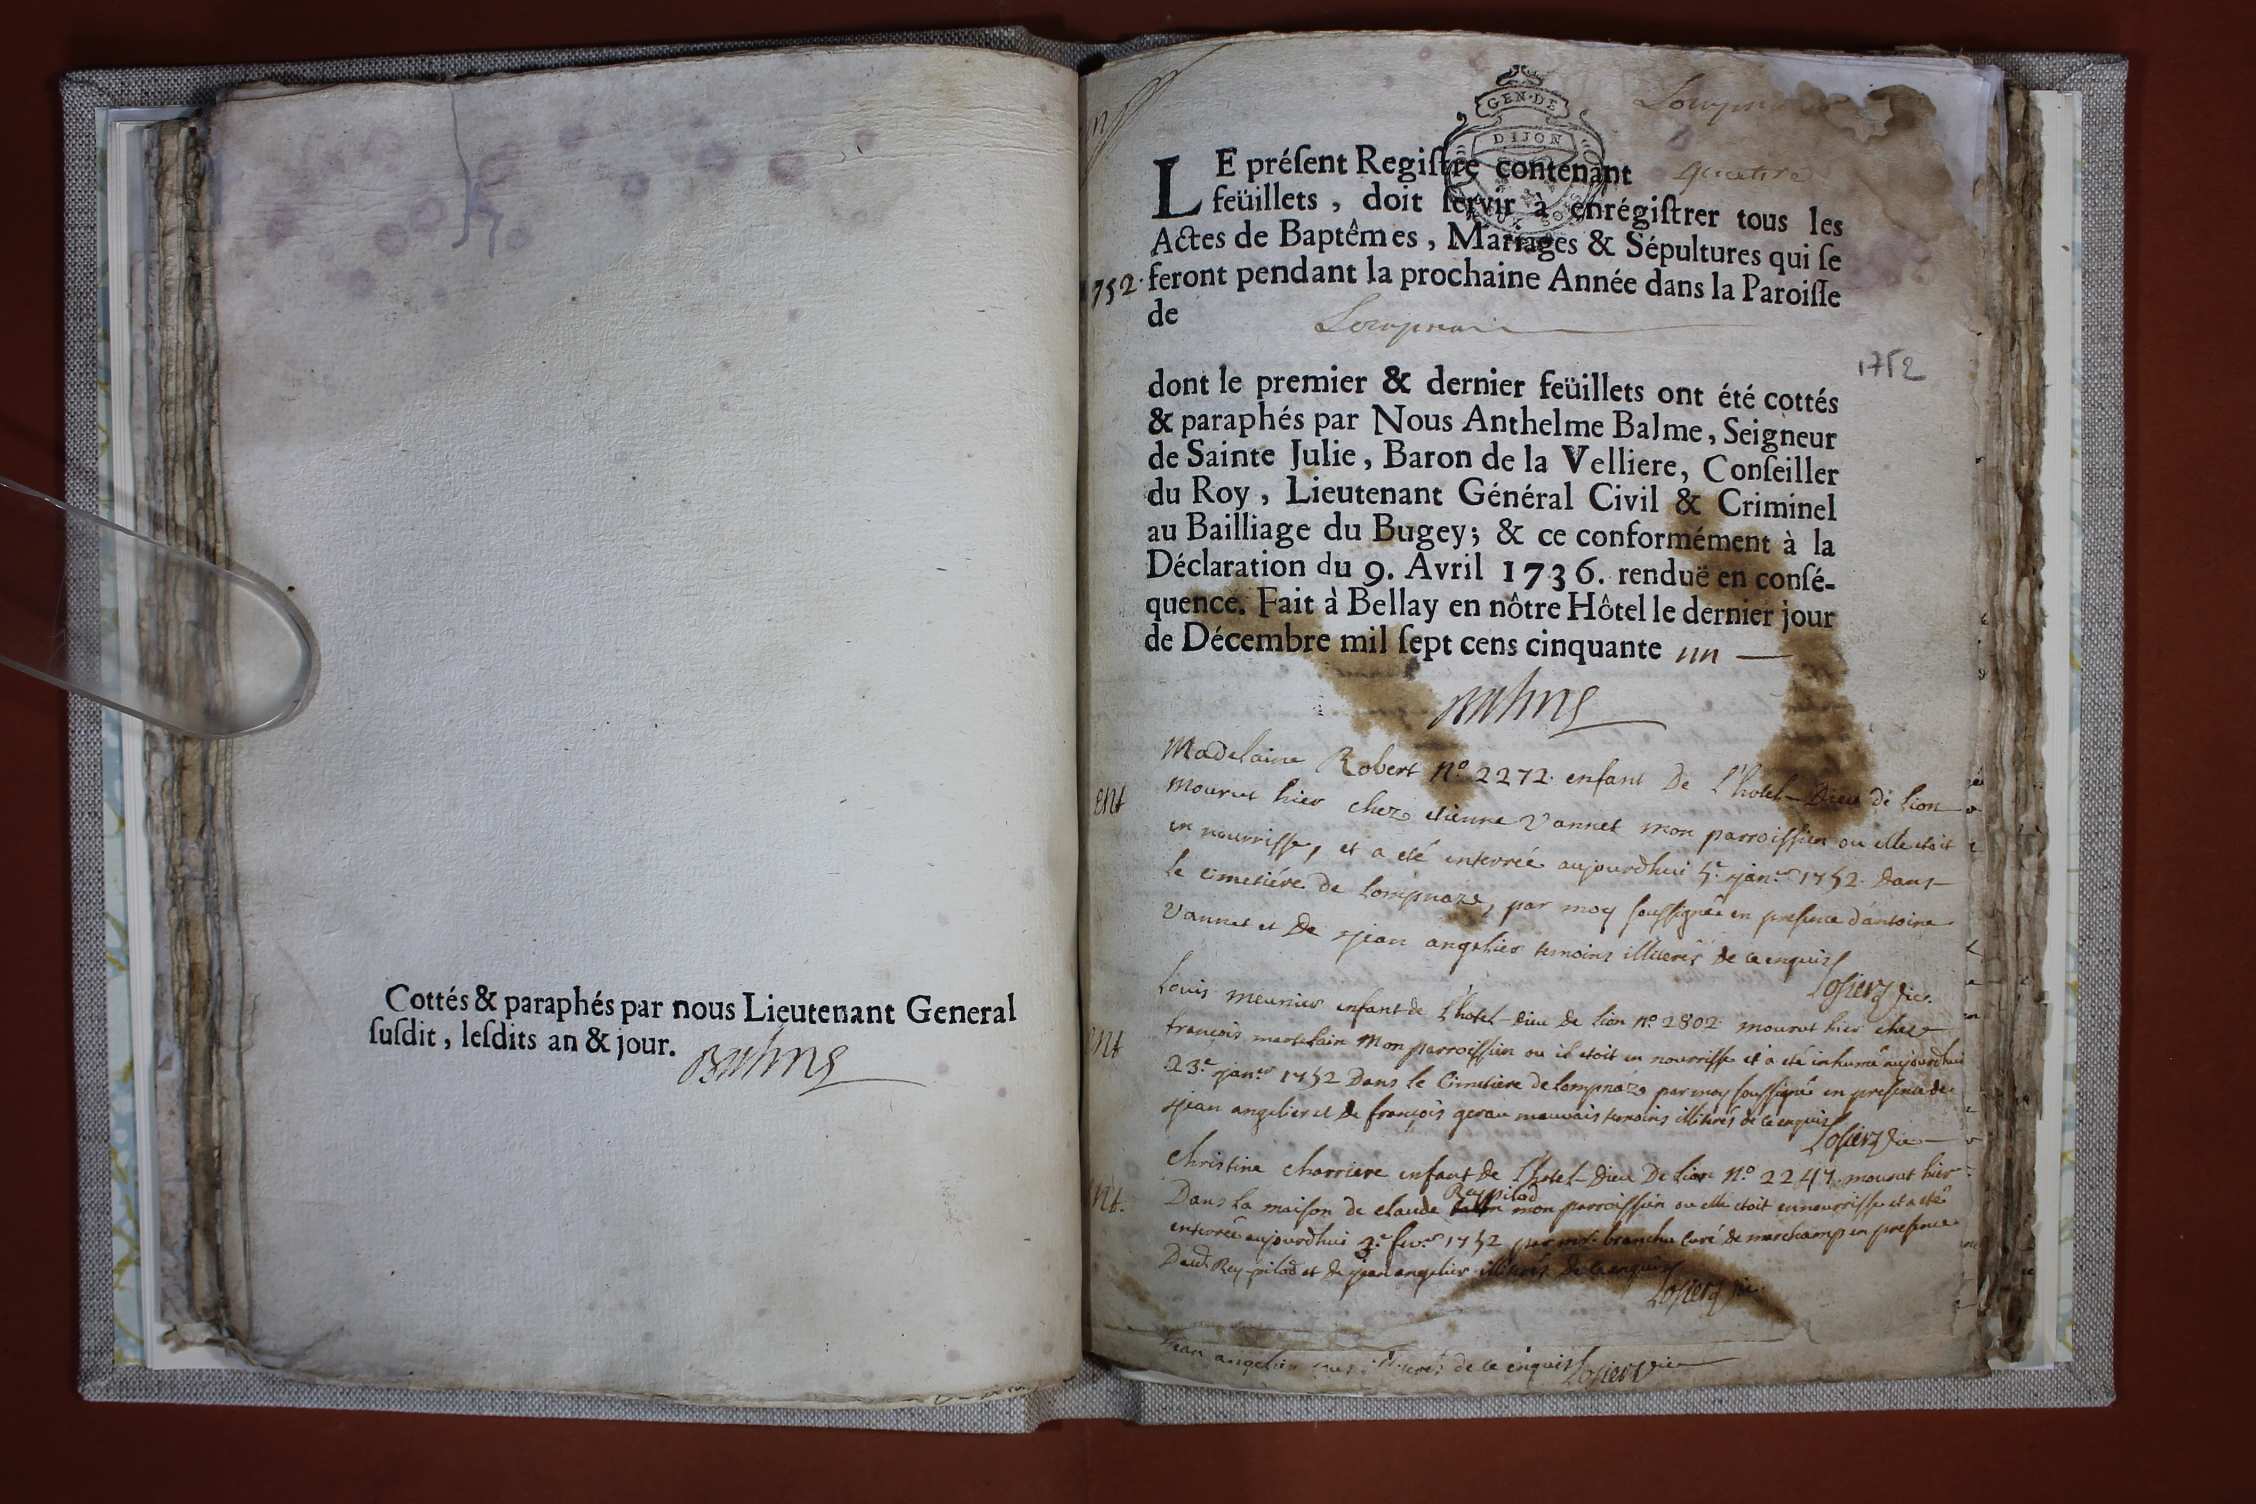 Cottés & paraphés par nous Lieutenant General
ſuſdit, leſdits an & jour.
GEN·DE
DIJON
LE préſent Regiſtre contenant quatre
feüillets, doit ſervir à enrégiſtrer tous les
Actes de Baptêmes, Mariages & Sépultures qui ſe
1752. feront pendant la prochaine Année dans la Paroiſſe
de Lompnas
1752
dont le premier & dernier feüillets ont été cottés
& paraphés par Nous Anthelme Balme, Seigneur
de Sainte Julie, Baron de la Velliere, Conſeiller
du Roy, Lieutenant Général Civil & Criminel
au Bailliage du Bugey; & ce conformément à la
Déclaration du 9. Avril 1736. renduë en conſé-
quence. Fait à Bellay en nôtre Hôtel le dernier jour
de Décembre mil ſept cens cinquante un
Madelaine Robert n.º 2272. enfant De l'hotel-Dieu de lion
mourut hier chez etienne Vannet mon parroissien ou elle etoit
en nourrisse, et a eté enterrée aujourdhui 5.e jan.er 1752. dans
le cimetiére de lompnaze, par moy soussigné en presence d'antoine
Vannet et De jean angelier temoins illiterés de ce enquis
Louis meunier enfant de l'hotel-dieu de lion n.º 2802 mourut hier chez
françois martelain mon parroissien ou il etoit en nourrisse et a eté inhumé aujourdhui
23.e jan.er 1752 Dans le Cimetiére de lompnaze par moy soussigné en presence de
jean angelier et de françois gerau mauvais temoins illiterés de ce enquis
christine charriere enfant de l'hotel-dieu De lion n.º 2247. mourut hier
Dans la maison de claude Reypilod mon parroissien ou elle etoit en nourrisse et a eté
enterrée aujourdhui 3.e fev.er 1752 par mr. branche curé de marchamp en presence
Dud. Rey-pilod et de jean angelier illiterés de ce enquis
jean angelier illiterés de ce enquis